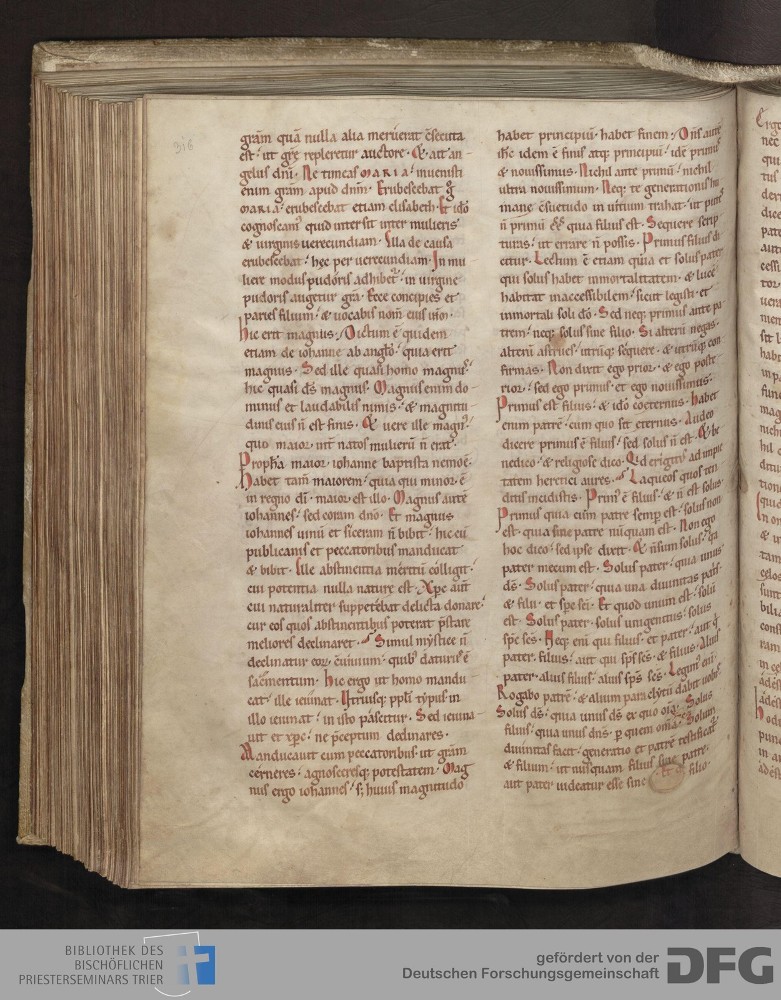 316
grām quā nulla alia meruerat c̄secuta
est· ut grę repleretur auctore· & ait an-
gelus dn̄i· Ne timeas MARIA· inuenisti
enim grām apud dn̄m· Erubescebat g̊
MARIA· erubescebat etiam elisabeth· Et idō
cognoscam᾽ quid intersit inter mulieris
& uirginis uerecundiam· Illa de causa
erubescebat· hęc per uerecundiam· In mu
liere modus pudoris adhibet᾽· in uirgine
pudoris augetur grā· Ecce concipies et
paries filium· & uocabis nom̄ eius ih̄m·
Hic erit magnus· Dictum ē quidem
etiam de iohanne ab anglo· quia erit
magnus· Sed ille quasi homo magn᾽·
hic quasi dš magnus· Magnus enim do-
minus et laudabilis nimis· & magnitu
dinis eius n̄ est finis· & uere ille magn᾽·
quo maior int̄ natos mulierū n̄ erat·
Prophā maior iohanne baptista nemo ē·
Habet tam̄ maiorem· quia qui minor ē
in regno dī· maior est illo· Magnus autē
iohannes· sed coram dn̄o· Et magnus
iohannes uinū et siceram n̄ bibit· hic cū
publicanis et peccatoribus manducat
& bibit· Ille abstinentia meritū colligit·
cui potentia nulla naturę est· Xp̄c aut̄
cui naturaliter suppetebat delicta donare·
cur eos quos abstinentibus poterat p̄stare
meliores declinaret· Simul mystice n̄
declinatur eor̄ c̄uiuium· quib᾽ datur᾽ ē
sacm̄entum· Hic ergo ut homo mandu-
cat· ille ieiunat· Utriusq; pp̄li typus in
illo ieiunat· in isto pascitur· Sed ieiuna-
uit et xp̄c· ne p̄ceptum declinares·
Manducauit cum peccatoribus· ut grām
cerneres· agnosceresq; potestatem· Mag
nus ergo iohannes· s; huius magnitudo
habet principiū· habet finem· Dn̄s autē
ih̄c idem ē finis atq; principiū· idē primꝰ
& nouissimus· Nichil ante primū· nichil
ultra nouissimum· Neq; te generationis hu
manę c̄suetudo in uitium trahat· ut putes
n̄ primū eē quia filius est· Sequere scrip
turas· ut errare n̄ possis· Primus filius di
citur· Lectum ē etiam quia et solus pater
qui solus habet inmortalitatem· & lucē
habitat inaccessibilem· sicut legisti· et
inmortali soli dō· Sed neq; primus ante pa
trem· neq; solus sine filio· Si alterū negas·
alterū astrues· utrūq; sequere· & utrūq; con
firmas· Non dixit ego prior· & ego poste
rior· sed ego primus· et ego nouissimus·
Primus est filius· & idō coeternus· habet
enim patrē· cum quo sit eternus· Audeo
dicere primus ē filius· sed solus n̄ est· & be
ne dico· & religiose dico· Qd erigitis ad impie
tatem heretici aures· Laqueos quos ten
ditis incidistis· Prim᾽ ē filius· & n̄ est solus·
Primus quia cum patre semp est· solus non
est· quia sine patre nūquam est· Non ego
hoc dico· sed ipse dixit· & n̄ sum solus· q̄a
pater mecum est· Solus pater· quia unus
dš· Solus pater· quia una diuinitas pat̄s·
& filii· et sp̄c sc̄i· Et quod unum est· solū
est· Solus pater· solus unigenitus· solus
sp̄c sc̄s· Neq; eni qui filius· et pater· aut q̄
pater· filius· aut qui sp̄s sc̄s· & filius· Alius
pater· alius filius· alius sp̄s sc̄s· Legim᾽ eni·
Rogabo patrē· & alium paraclytū dabit uobis·
Solus dš· quia unus dš ex quo oīa· Solus
filius· quia unus dn̄s· p̄ quem omīa· Solum
diuinitas facit· generatio et patrē testificat᾽
& filium· ut nusquam filius sine patre·
aut pater uideatur esse sine filio·
BIBLIOTHEK DES
BISCHÖFLICHEN
PRIESTERSEMINARS TRIER
gefördert von der
Deutschen Forschungsgemeinschaft
DFG